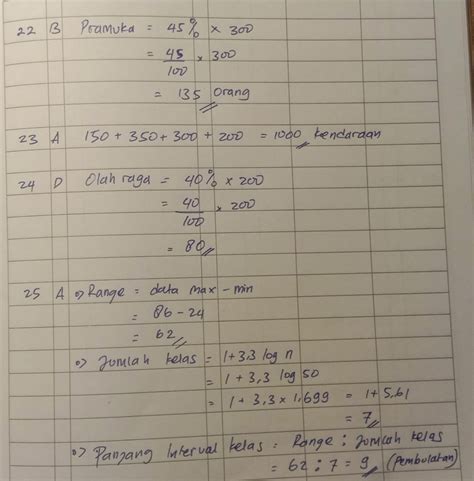 22 B Pramuka = 45% × 300
= 45/100 × 300
= 135 orang
23 A 150 + 350 + 300 + 200 = 1000 kendaraan
24 D Olah raga = 40% × 200
= 40/100 × 200
= 80
25 A => Range = data max - min
= 86 - 24
= 62
=> Jumlah kelas = 1+3,3 log n
= 1 + 3,3 log 50
= 1 + 3,3 × 1,699 = 1+5,61
= 7
=> Panjang Interval kelas = Range : Jumlah kelas
= 62 : 7 = 9 (Pembulatan)